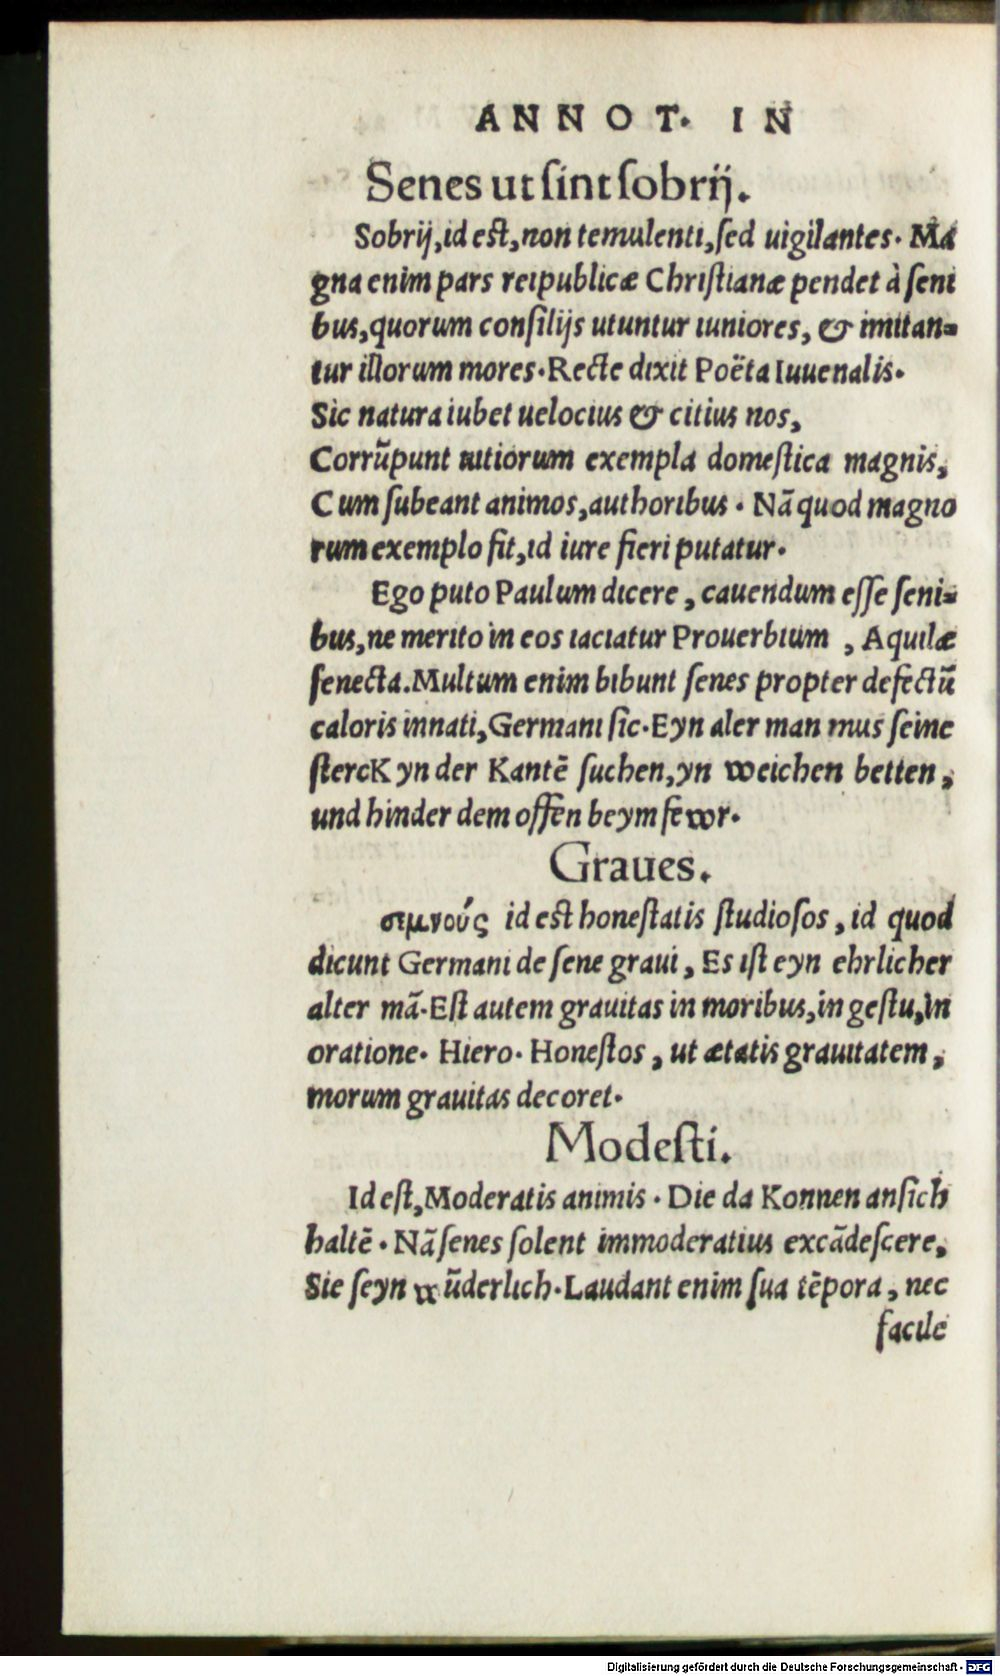 ANNOT. IN
Senes ut ſint ſobrij.
Sobrij, id eſt, non temulenti, ſed uigilantes. Ma
gna enim pars reipublicæ Chriſtianæ pendet à ſeni
bus, quorum conſilijs utuntur iuniores, & imitan=
tur illorum mores. Recte dixit Poëta Iuuenalis.
Sic natura iubet uelocius & citius nos,
Corrũpunt uitiorum exempla domeſtica magnis,
Cum ſubeant animos, authoribus. Nã quod magno
rum exemplo fit, id iure fieri putatur.
Ego puto Paulum dicere, cauendum eſſe ſeni=
bus, ne merito in eos iaciatur Prouerbium, Aquilæ
ſenecta. Multum enim bibunt ſenes propter defectũ
caloris innati, Germani ſic. Eyn aler man mus ſeine
ſterck yn der Kantẽ ſuchen, yn weichen betten,
und hinder dem offen beym fewr.
Graues.
σεμνούς id eſt honeſtatis ſtudioſos, id quod
dicunt Germani de ſene graui, Es iſt eyn ehrlicher
alter mã. Eſt autem grauitas in moribus, in geſtu, in
oratione. Hiero. Honeſtos, ut ætatis grauitatem,
morum grauitas decoret.
Modeſti.
Id eſt, Moderatis animis. Die da Konnen anſich
haltẽ. Nã ſenes ſolent immoderatius excãdeſcere,
Sie ſeyn wũderlich. Laudant enim ſua tẽpora, nec
facile
Digitalisierung gefördert durch die Deutsche Forschungsgemeinschaft - DFG